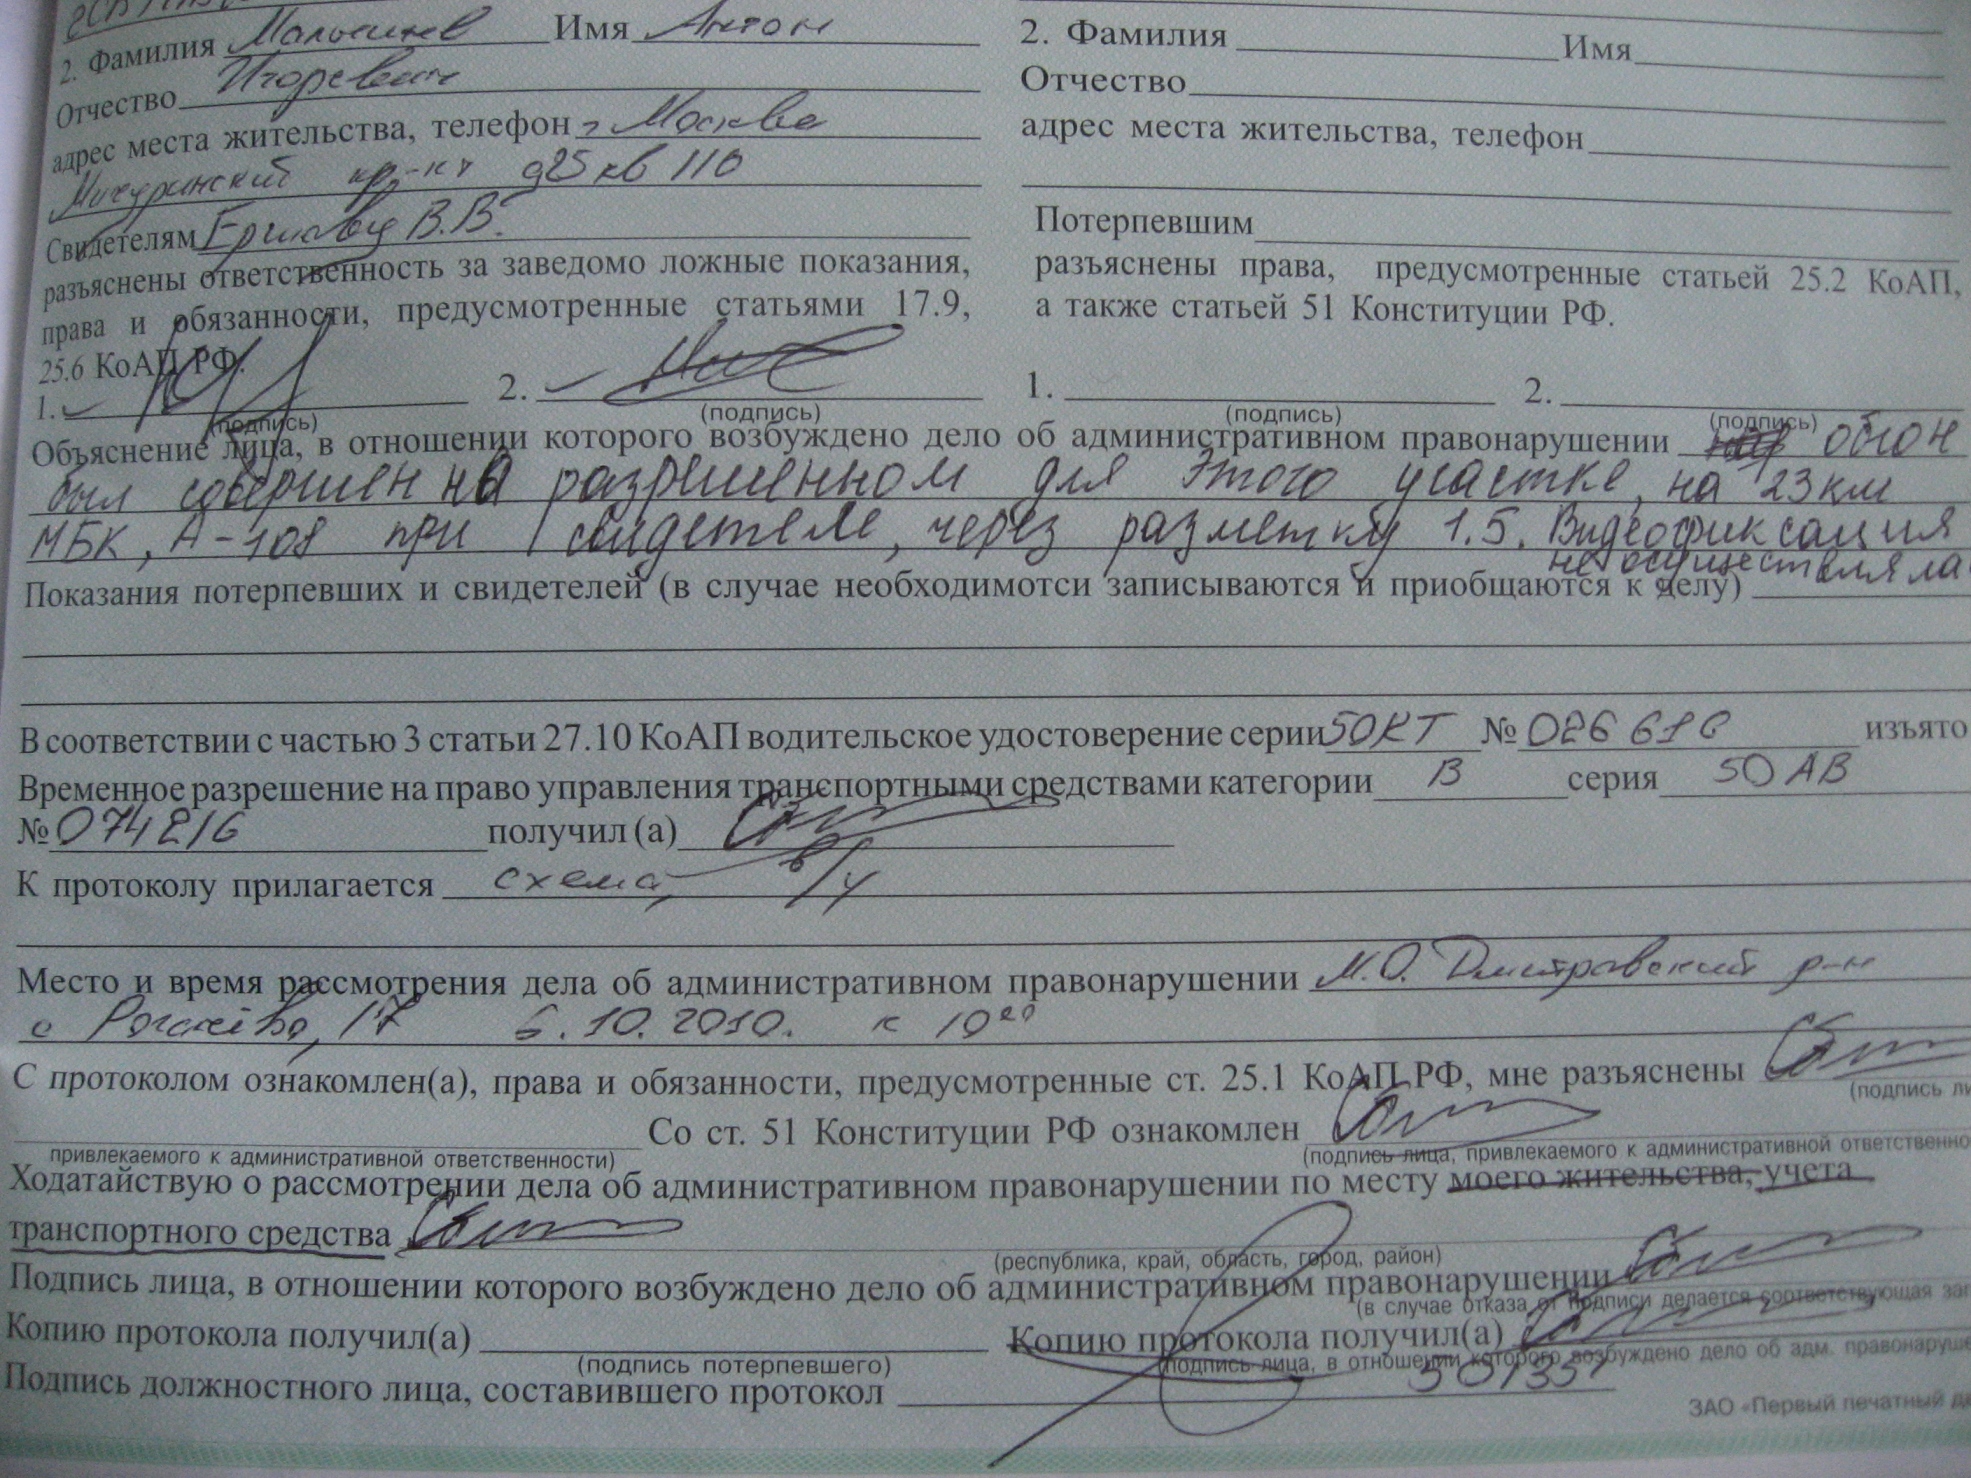 2. Фамилия Имя Антон
Отчество Игоревич
адрес места жительства, телефон г Москва
Мичуринский пр-кт д25 кв 110
Свидетелям Ершову В.В.
разъяснены ответственность за заведомо ложные показания,
права и обязанности, предусмотренные статьями 17.9,
25.6 КоАП РФ.
1. 2.
(подпись) (подпись)
2. Фамилия Имя
Отчество
адрес места жительства, телефон
Потерпевшим
разъяснены права, предусмотренные статьей 25.2 КоАП,
а также статьей 51 Конституции РФ.
1. 2.
(подпись) (подпись)
Объяснение лица, в отношении которого возбуждено дело об административном правонарушении обгон
был совершен на разрешенном для этого участке, на 23 км
МБК, А-108 при свидетеле, через разметку 1.5. Видеофиксация
не осуществляла
Показания потерпевших и свидетелей (в случае необходимотси записываются и приобщаются к делу)
В соответствии с частью 3 статьи 27.10 КоАП водительское удостоверение серии 50КТ № изъято
Временное разрешение на право управления транспортными средствами категории В серия 50 АВ
№ 074216 получил (а)
К протоколу прилагается схема,
Место и время рассмотрения дела об административном правонарушении М.О. Дмитровский р-н
с Рогачёво, 17 6.10.2010. к 10 00
С протоколом ознакомлен(а), права и обязанности, предусмотренные ст. 25.1 КоАП РФ, мне разъяснены
(подпись ли
Со ст. 51 Конституции РФ ознакомлен
привлекаемого к административной ответственности) (подпись лица, привлекаемого к административной ответственно
Ходатайствую о рассмотрении дела об административном правонарушении по месту моего жительства, учета
транспортного средства
(республика, край, область, город, район)
Подпись лица, в отношении которого возбуждено дело об административном правонарушении
(в случае отказа от подписи делается соответствующая зап
Копию протокола получил(а) Копию протокола получил(а)
(подпись потерпевшего) (подпись лица, в отношении которого возбуждено дело об адм. правонаруше
Подпись должностного лица, составившего протокол
ЗАО «Первый печатный д